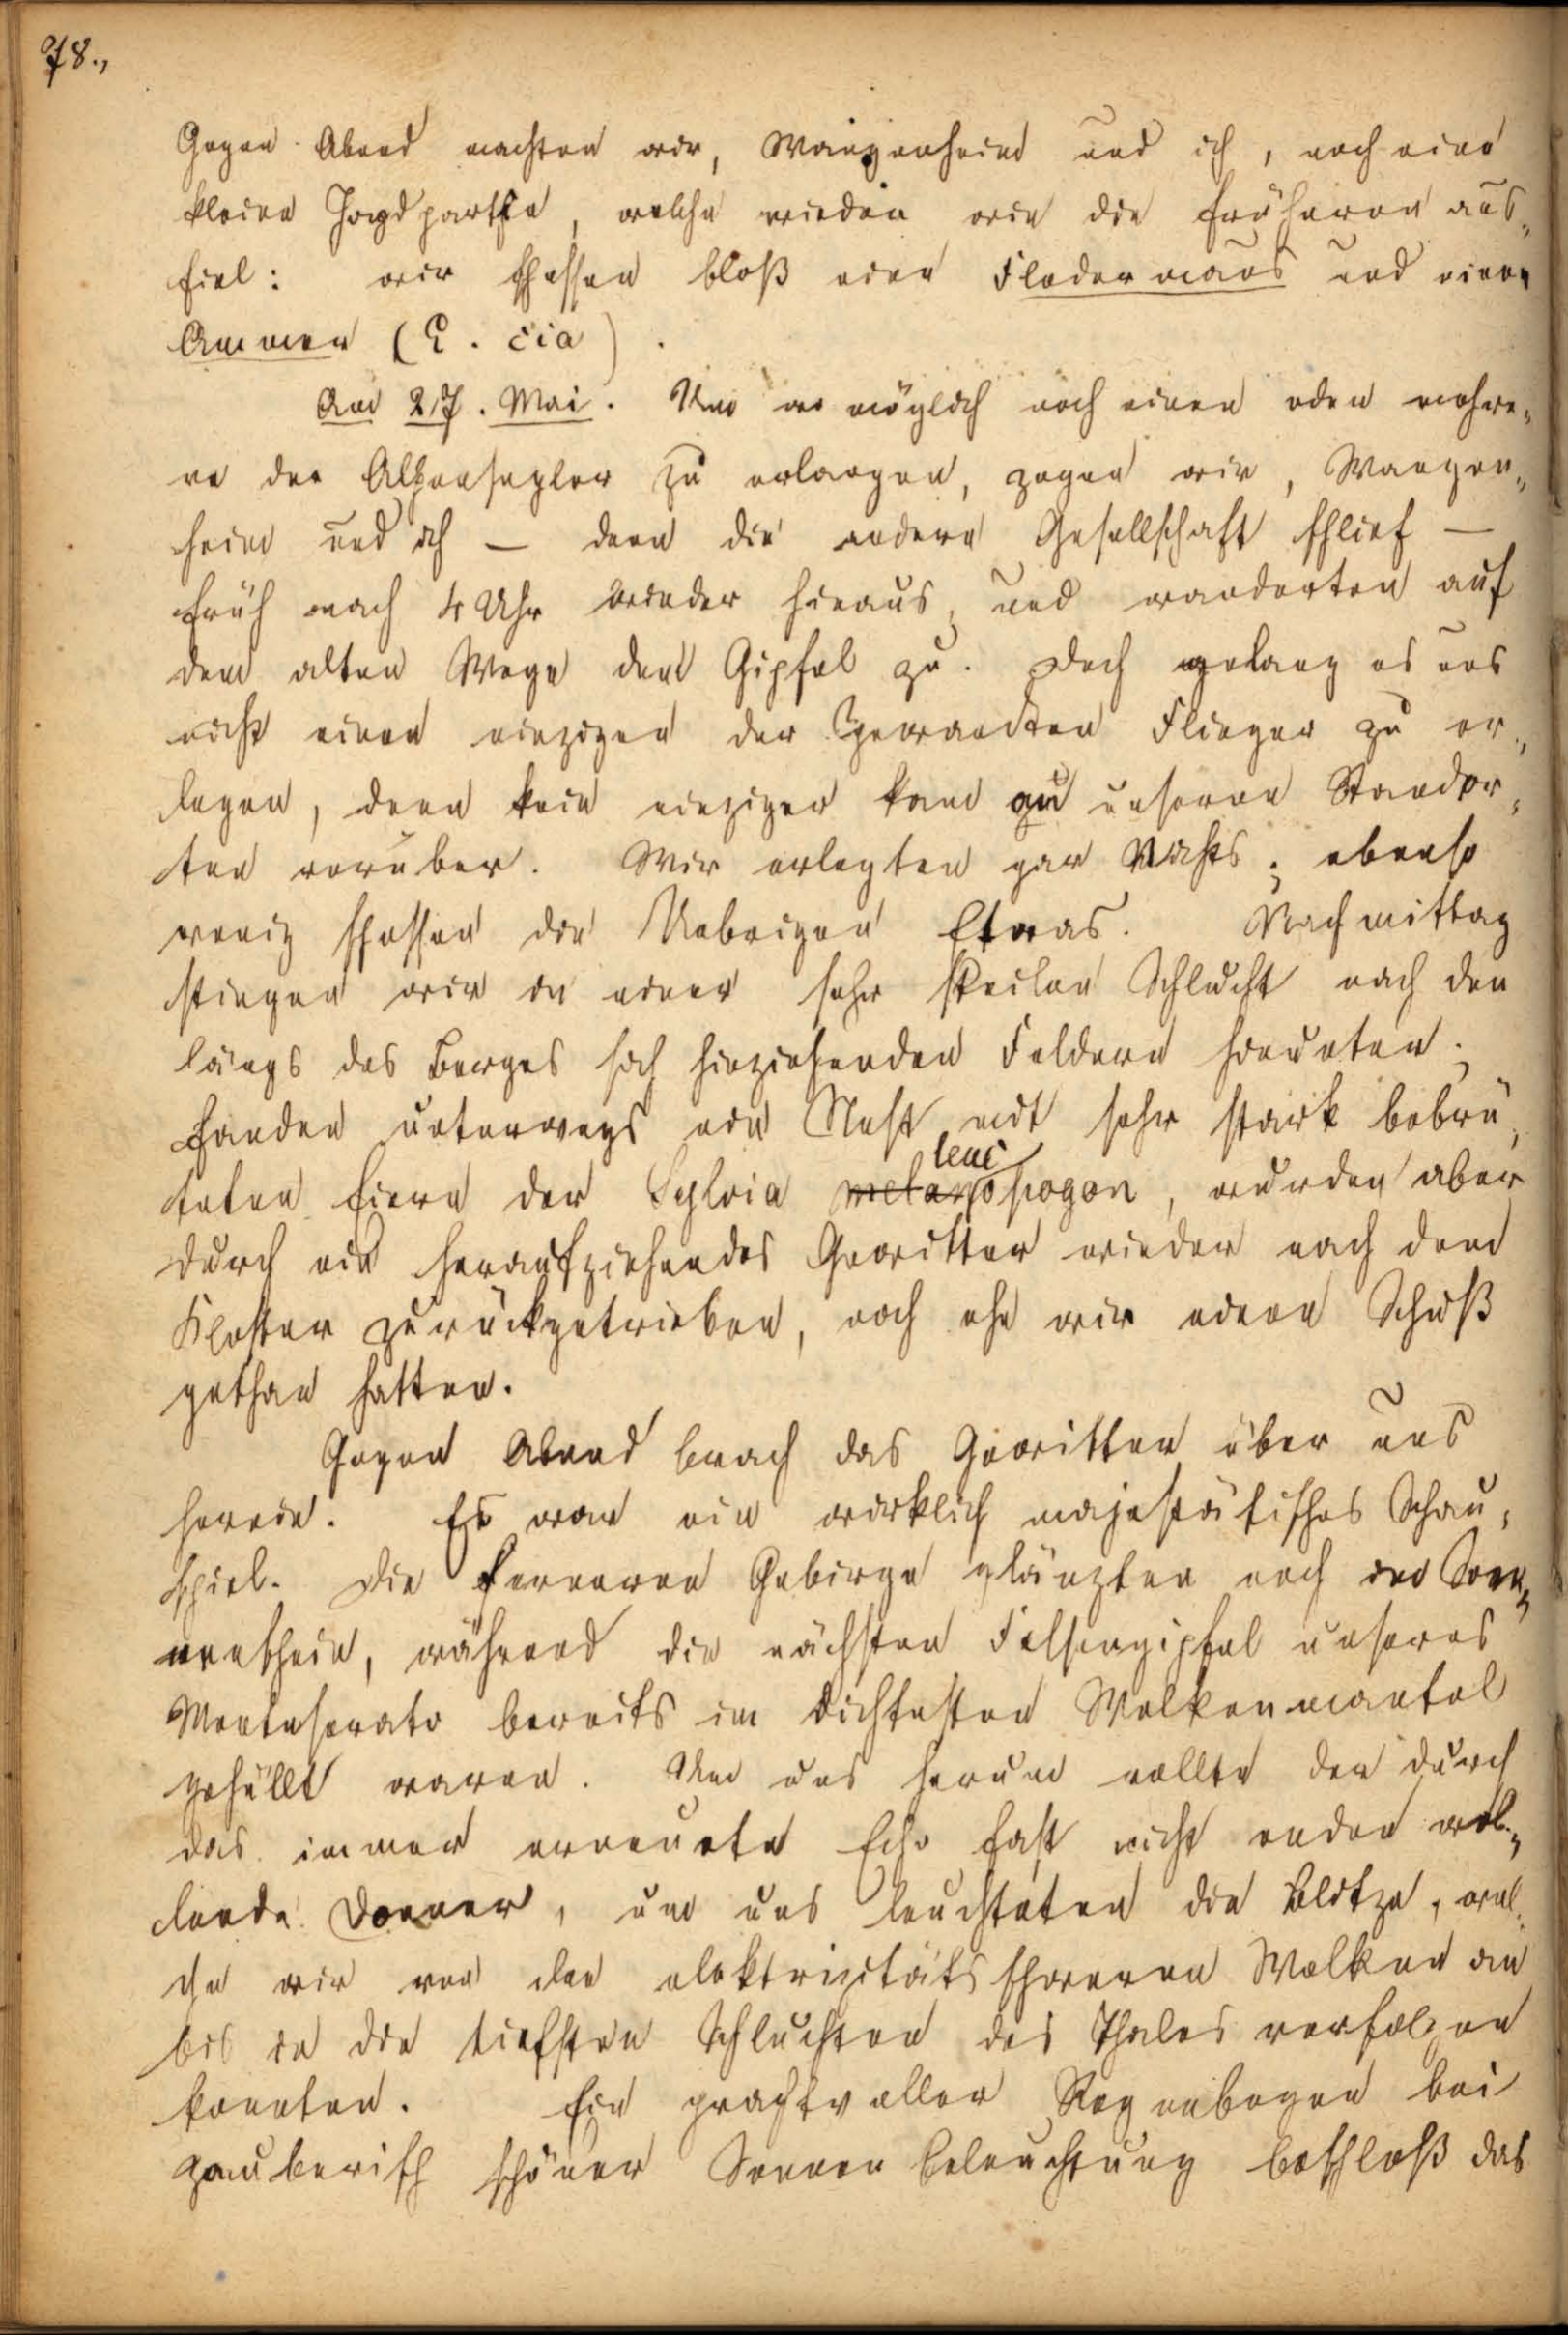 78.,
Gegen Abend machten wir, Wangenheim und ich, noch eine
kleine Jagdparthie, welche wieder wie die früheren aus„
fiel: wir schossen bloß eine Fledermaus und einen
Ammer (E. cia).
Am 27. Mai. Um wo möglich noch einen oder mehre„
re der Alpensegler zu erlangen, zogen wir, Wangen„
heim und ich — denn die andere Gesellschaft schlief —
früh nach 4 Uhr wieder hinaus, und wanderten auf
dem alten Wege dem Gipfel zu. Doch gelang es uns
nicht einen einzigen der gewandten Flieger zu er„
legen, denn kein einziger kam an unseren Standor„
ten vorüber. Wir erlegten gar Nichts; ebenso
wenig schossen die Uebrigen Etwas. Nachmittag
stiegen wir in einer sehr steilen Schlucht nach den
längs des Berges sich hinziehenden Feldern hinunter;
fanden unterwegs ein Nest mit sehr stark bebrü„
leuc
teten Eiern der Sylvia melanopogon, wurden aber
durch ein heraufziehendes Gewitter wieder nach dem
Kloster zurückgetrieben, noch ehe wir einen Schuß
gethan hatten.
Gegen Abend brach das Gewitter über uns
herein. Es war ein wirklich majestätisches Schau„
spiel. Die ferneren Gebirge glänzten noch im Son„
nenschein, während die nächsten Felsengipfel unseres
Monteserato bereits im dichtesten Wolkenmantel
gehüllt waren. Um uns herum rollte der durch
das immer erneute Echo fast nicht enden wol„
lende Donner, um uns leuchteten die Blitze, wel„
che wir von den elektrizitätsschweren Wolken an
bis in die tiefsten Schluchten des Thales verfolgen
konnten. Ein prachtvoller Regenbogen bei
zauberisch schöner Sonnenbeleuchtung beschloß das